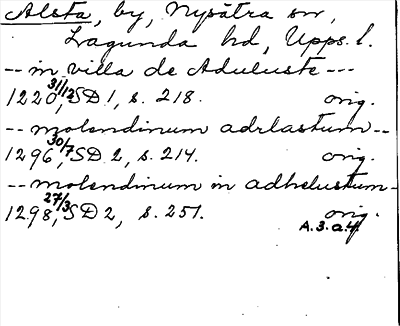 Alsta, by, Nysätra sn,
Lagunda hd, Upps. l.
-- in villa de Aduluste ---
1220 31/12, SD 1, s. 218. orig.
-- molendinum adrlastum --
1296 30/7, SD 2, s. 214. orig.
-- molendinum in adhelustum -
1298 27/3, SD 2, s. 251. orig.
A.3.a.4.